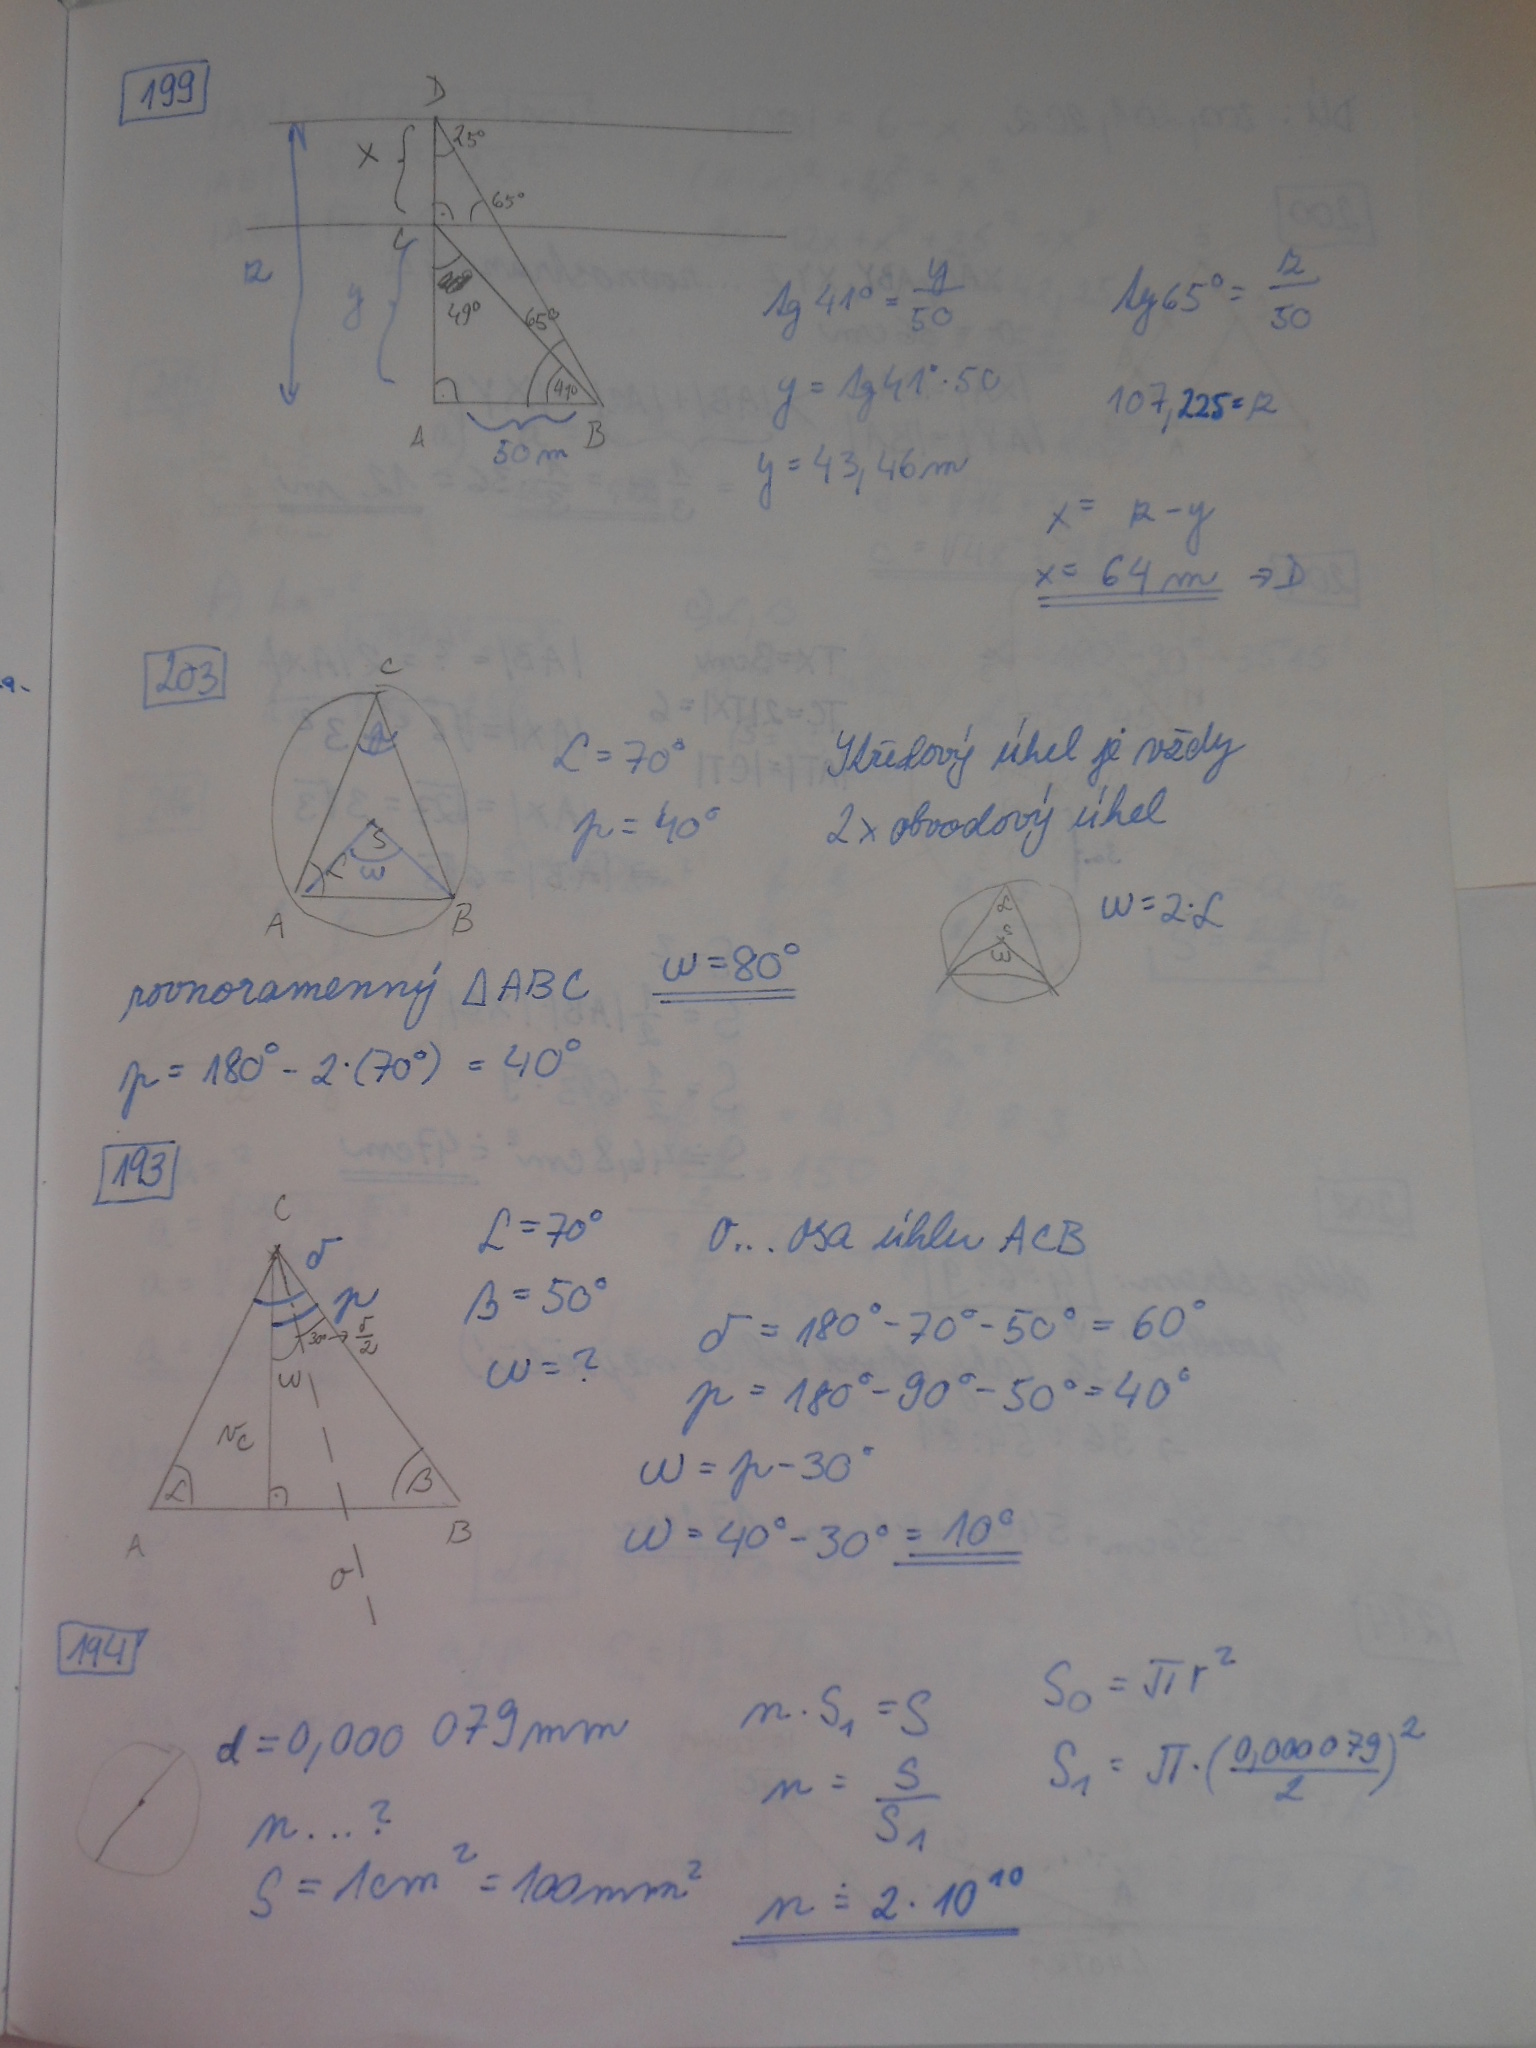 199
D
25°
x
65°
C
z
y
49°
65°
41°
A
B
50 m
tg 41° = y/50
y = tg 41° · 50
y = 43,46 m
tg 65° = z/50
107,225 = z
x = z - y
x = 64 m → D
203
C
S
ω
A
B
α = 70°
p = 40°
Středový úhel je vždy
2x obvodový úhel
α
S
ω
ω = 2·α
rovnoramenný △ABC
ω = 80°
p = 180° - 2·(70°) = 40°
193
C
δ
p
30° → δ/2
ω
vc
α
β
A
B
o
α = 70°
β = 50°
ω = ?
o... osa úhlu ACB
δ = 180° - 70° - 50° = 60°
p = 180° - 90° - 50° = 40°
ω = p - 30°
ω = 40° - 30° = 10°
194
d = 0,000 079 mm
n...?
S = 1cm² = 100mm²
n · S₁ = S
n = S/S₁
n ≐ 2 · 10¹⁰
S₀ = πr²
S₁ = π · (0,000079/2)²